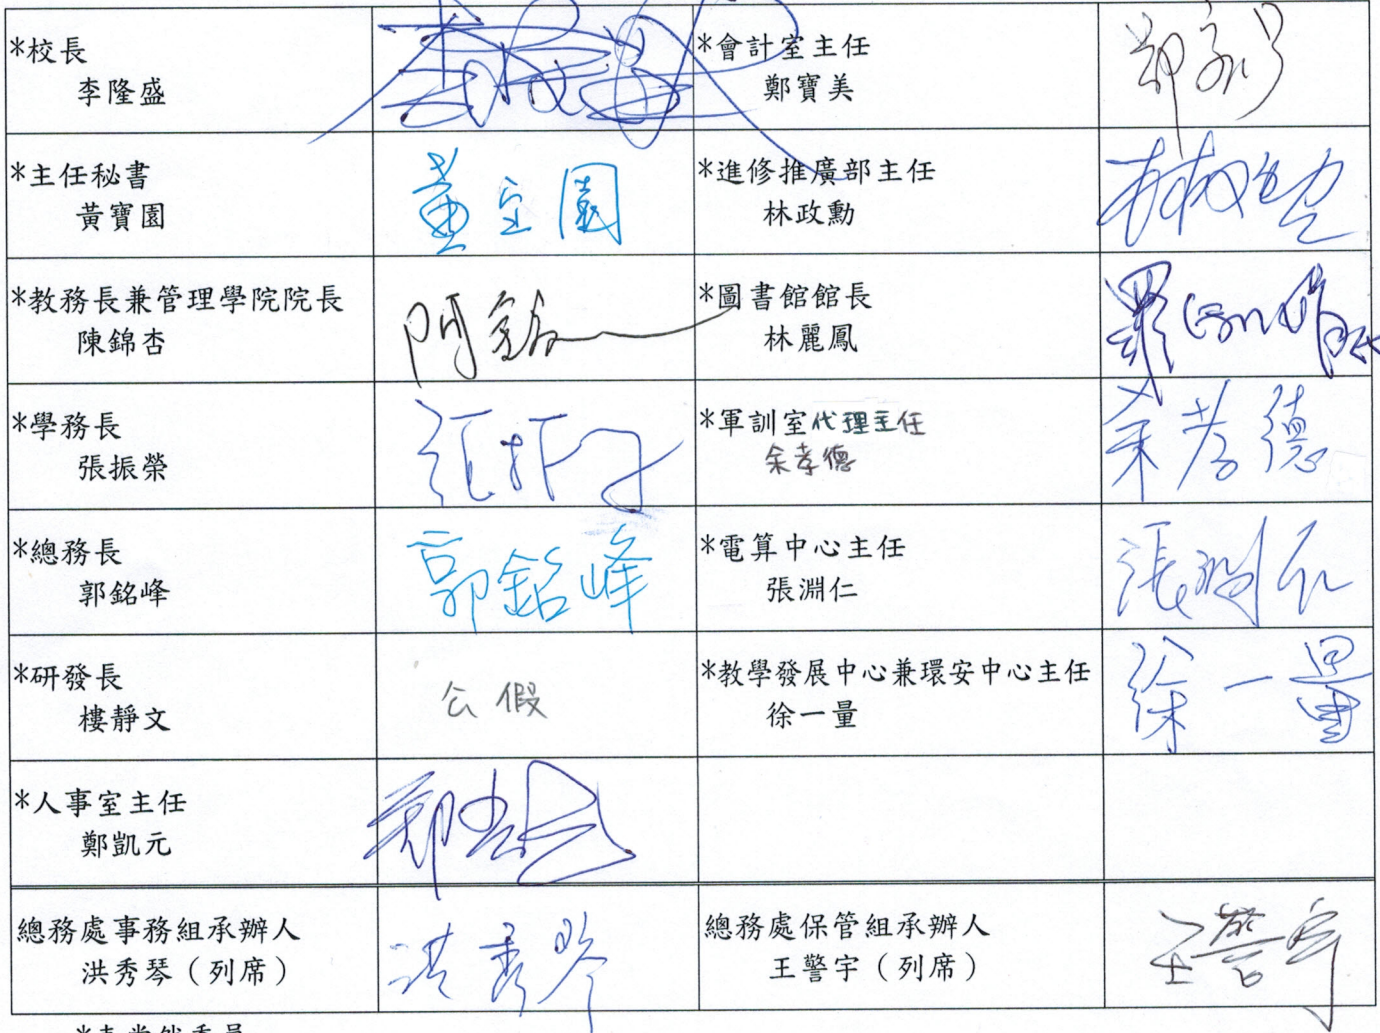 *校長
李隆盛
*會計室主任
鄭寶美
*主任秘書
黃寶園
黃宝園
*進修推廣部主任
林政勳
*教務長兼管理學院院長
陳錦杏
*圖書館館長
林麗鳳
*學務長
張振榮
*軍訓室代理主任
余孝德
余孝德
*總務長
郭銘峰
郭銘峰
*電算中心主任
張淵仁
張淵仁
*研發長
樓靜文
公假
*教學發展中心兼環安中心主任
徐一量
徐一量
*人事室主任
鄭凱元
總務處事務組承辦人
洪秀琴（列席）
洪秀琴
總務處保管組承辦人
王警宇（列席）
王警宇